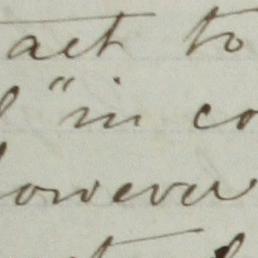 act to
"in co
however